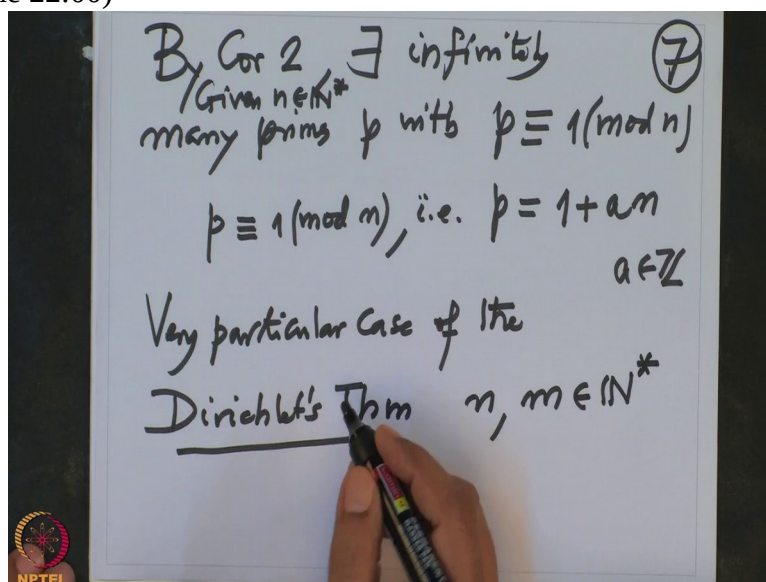 By Cor 2, ∃ infinitely ⑦
/Given n∈ℕ*
many prims p with p ≡ 1(mod n)
p ≡ 1(mod n), i.e. p = 1+an
a∈ℤ
Very particular Case of the
Dirichlet's Thm n, m ∈ ℕ*
NPTEL